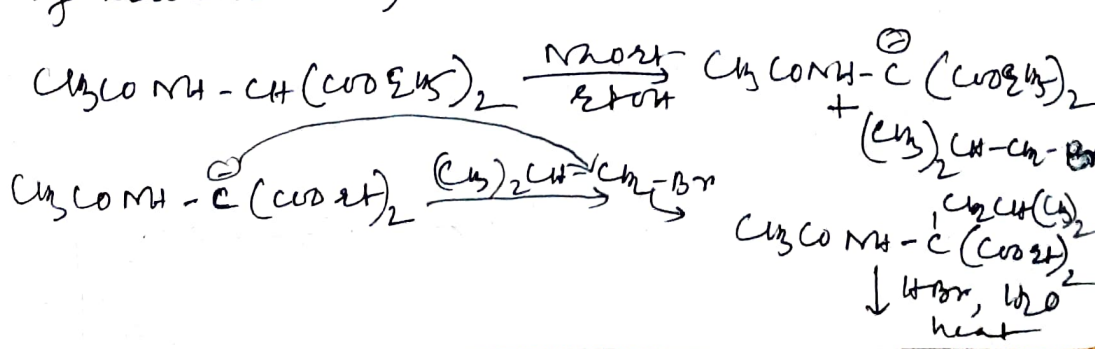 CH3CO NH - CH (COOEt)2 NaOEt EtOH CH3 CONH - C⊖ (COOEt)2
+
(CH3)2 CH-CH2-Br
CH3CO NH - C⊖ (COOEt)2 (CH3)2 CH-CH2-Br
CH2CH(CH3)2
CH3CO NH - C (COOEt)2
↓ HBr, H2O
heat